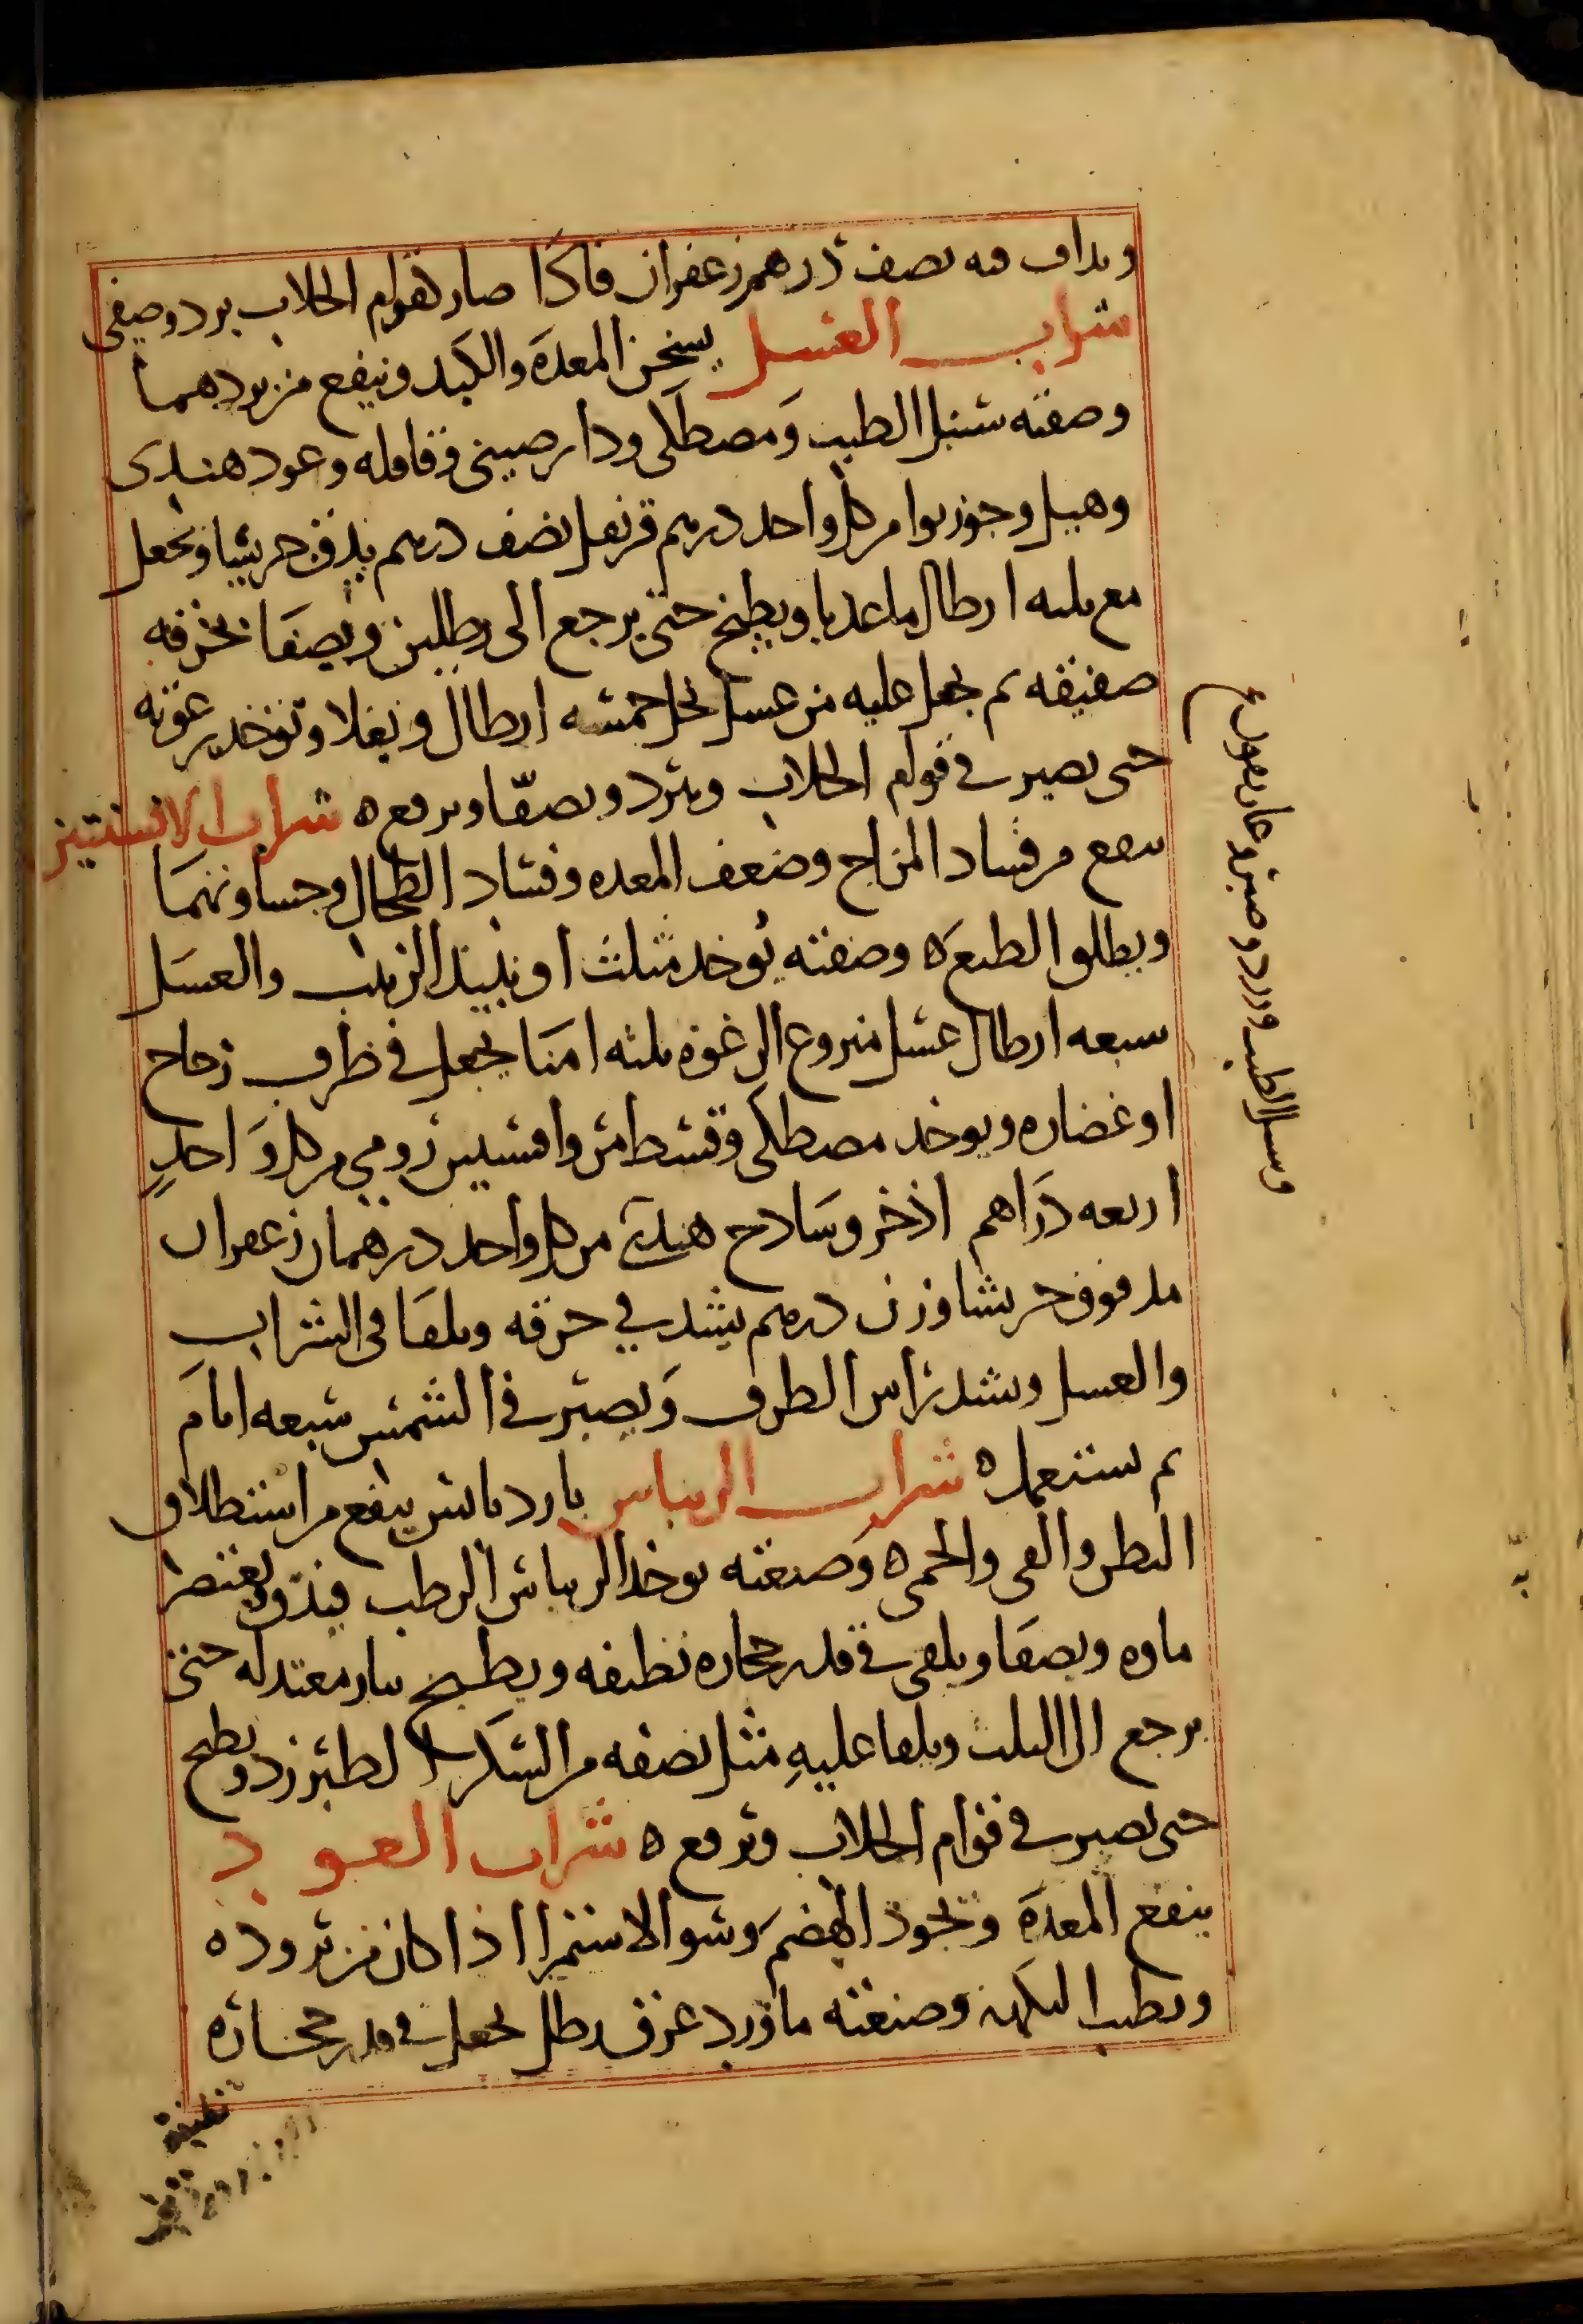 ويداف فيه نصف درهم زعفران فاذا صار كقوام الجلاب برد وصفي
شراب العسل يسخن المعدة والكبد وينفع من بردهما
وصفته سنبل الطيب ومصطكى ودارصيني وقاقله وعود هندى
وهيل وجوزبوا من كل واحد درهم قرنفل نصف درهم يدق جريشا ويجعل
مع ثلثه ارطال ما عذبا ويطبخ حتى يرجع الى رطلين ويصفا بخرقه
صفيقه ثم يجعل عليه من عسل نحل خمسه ارطال ويغلا وتؤخذ رغوته
حتى يصير في قوام الجلاب ويبرد ويصفّا ويرفع ه شراب الافسنتين
ينفع من فساد المزاج وضعف المعده وفساد الطحال وجساوتهما
ويطلق الطبع ه وصفته يوخذ مثلث او نبيذ الزبيب والعسل
سبعه ارطال عسل منزوع الرغوة ثلثه امنا يجعل في ظرف زجاج
او غضاره ويوخذ مصطكى وقسط مر وافسنتين رومي من كل واحدٍ
اربعه دراهم اذخر وسادج هندي من كل واحد درهمان زعفران
مدقوق جريشا وزن درهم يشد في خرقه ويلقا في الشراب
والعسل ويشد راس الظرف ويصير في الشمس سبعه ايام
ثم يستعمل ه شراب الريباس بارد يابس ينفع من استطلاق
البطن والقى والحمى ه وصنعته يوخذ الريباس الرطب فيدق ويعتصر
ماوه ويصفا ويلقى في قدر حجاره نظيفه ويطبخ بنار معتدله حتى
يرجع الى الثلث ويلقا عليهِ مثل نصفه من السكر الطبرزد ويطبخ
حتى يصير في قوام الجلاب ويرفع ه شراب العود
ينفع المعدة ويجود الهضم وسو الاستمرا اذا كان من بروده
ويطيب النكهة وصنعته ماورد عرق رطل يجعل في قدر حجاره
نظيفة
وسنبل الطيب وورد وصبر